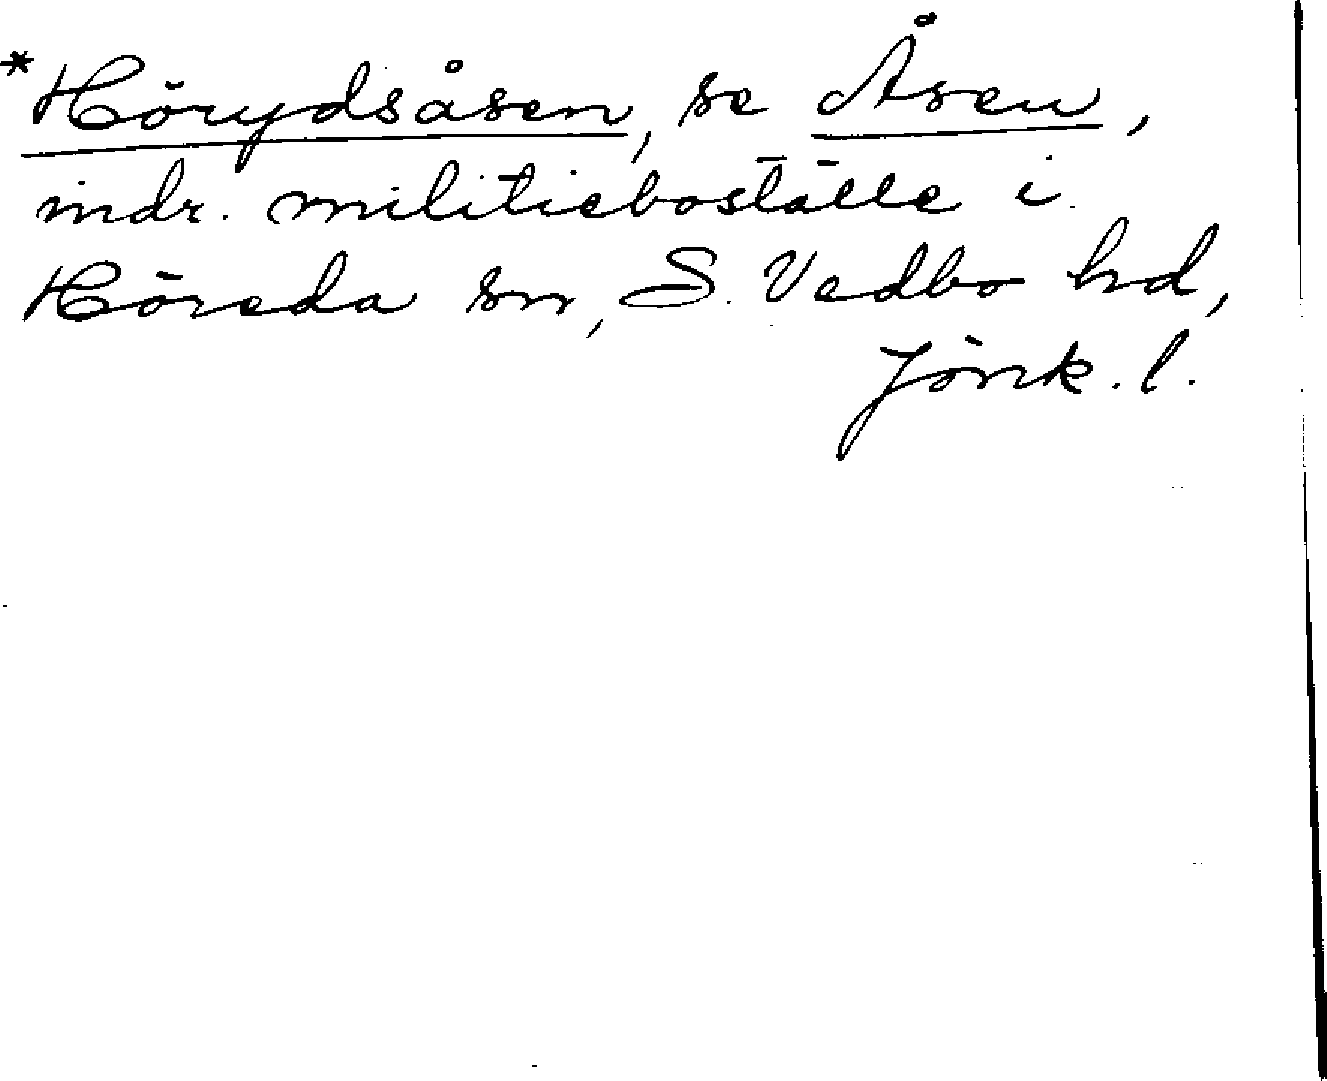 *Hörydsåsen, se Åsen,
indr. militieboställe i
Höreda sn, S. Vedbo hd,
Jönk. l.